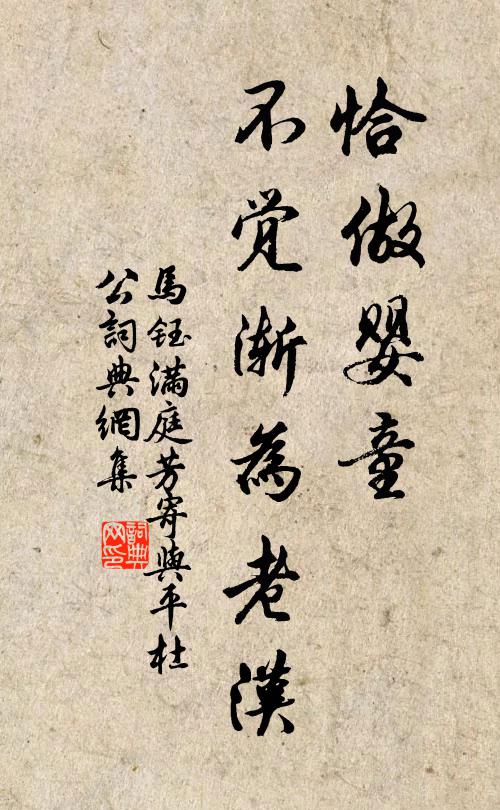 恰做婴童
不觉渐為老漢
馬鈺满庭芳寄與平杜
公詞典網集
詞典网印